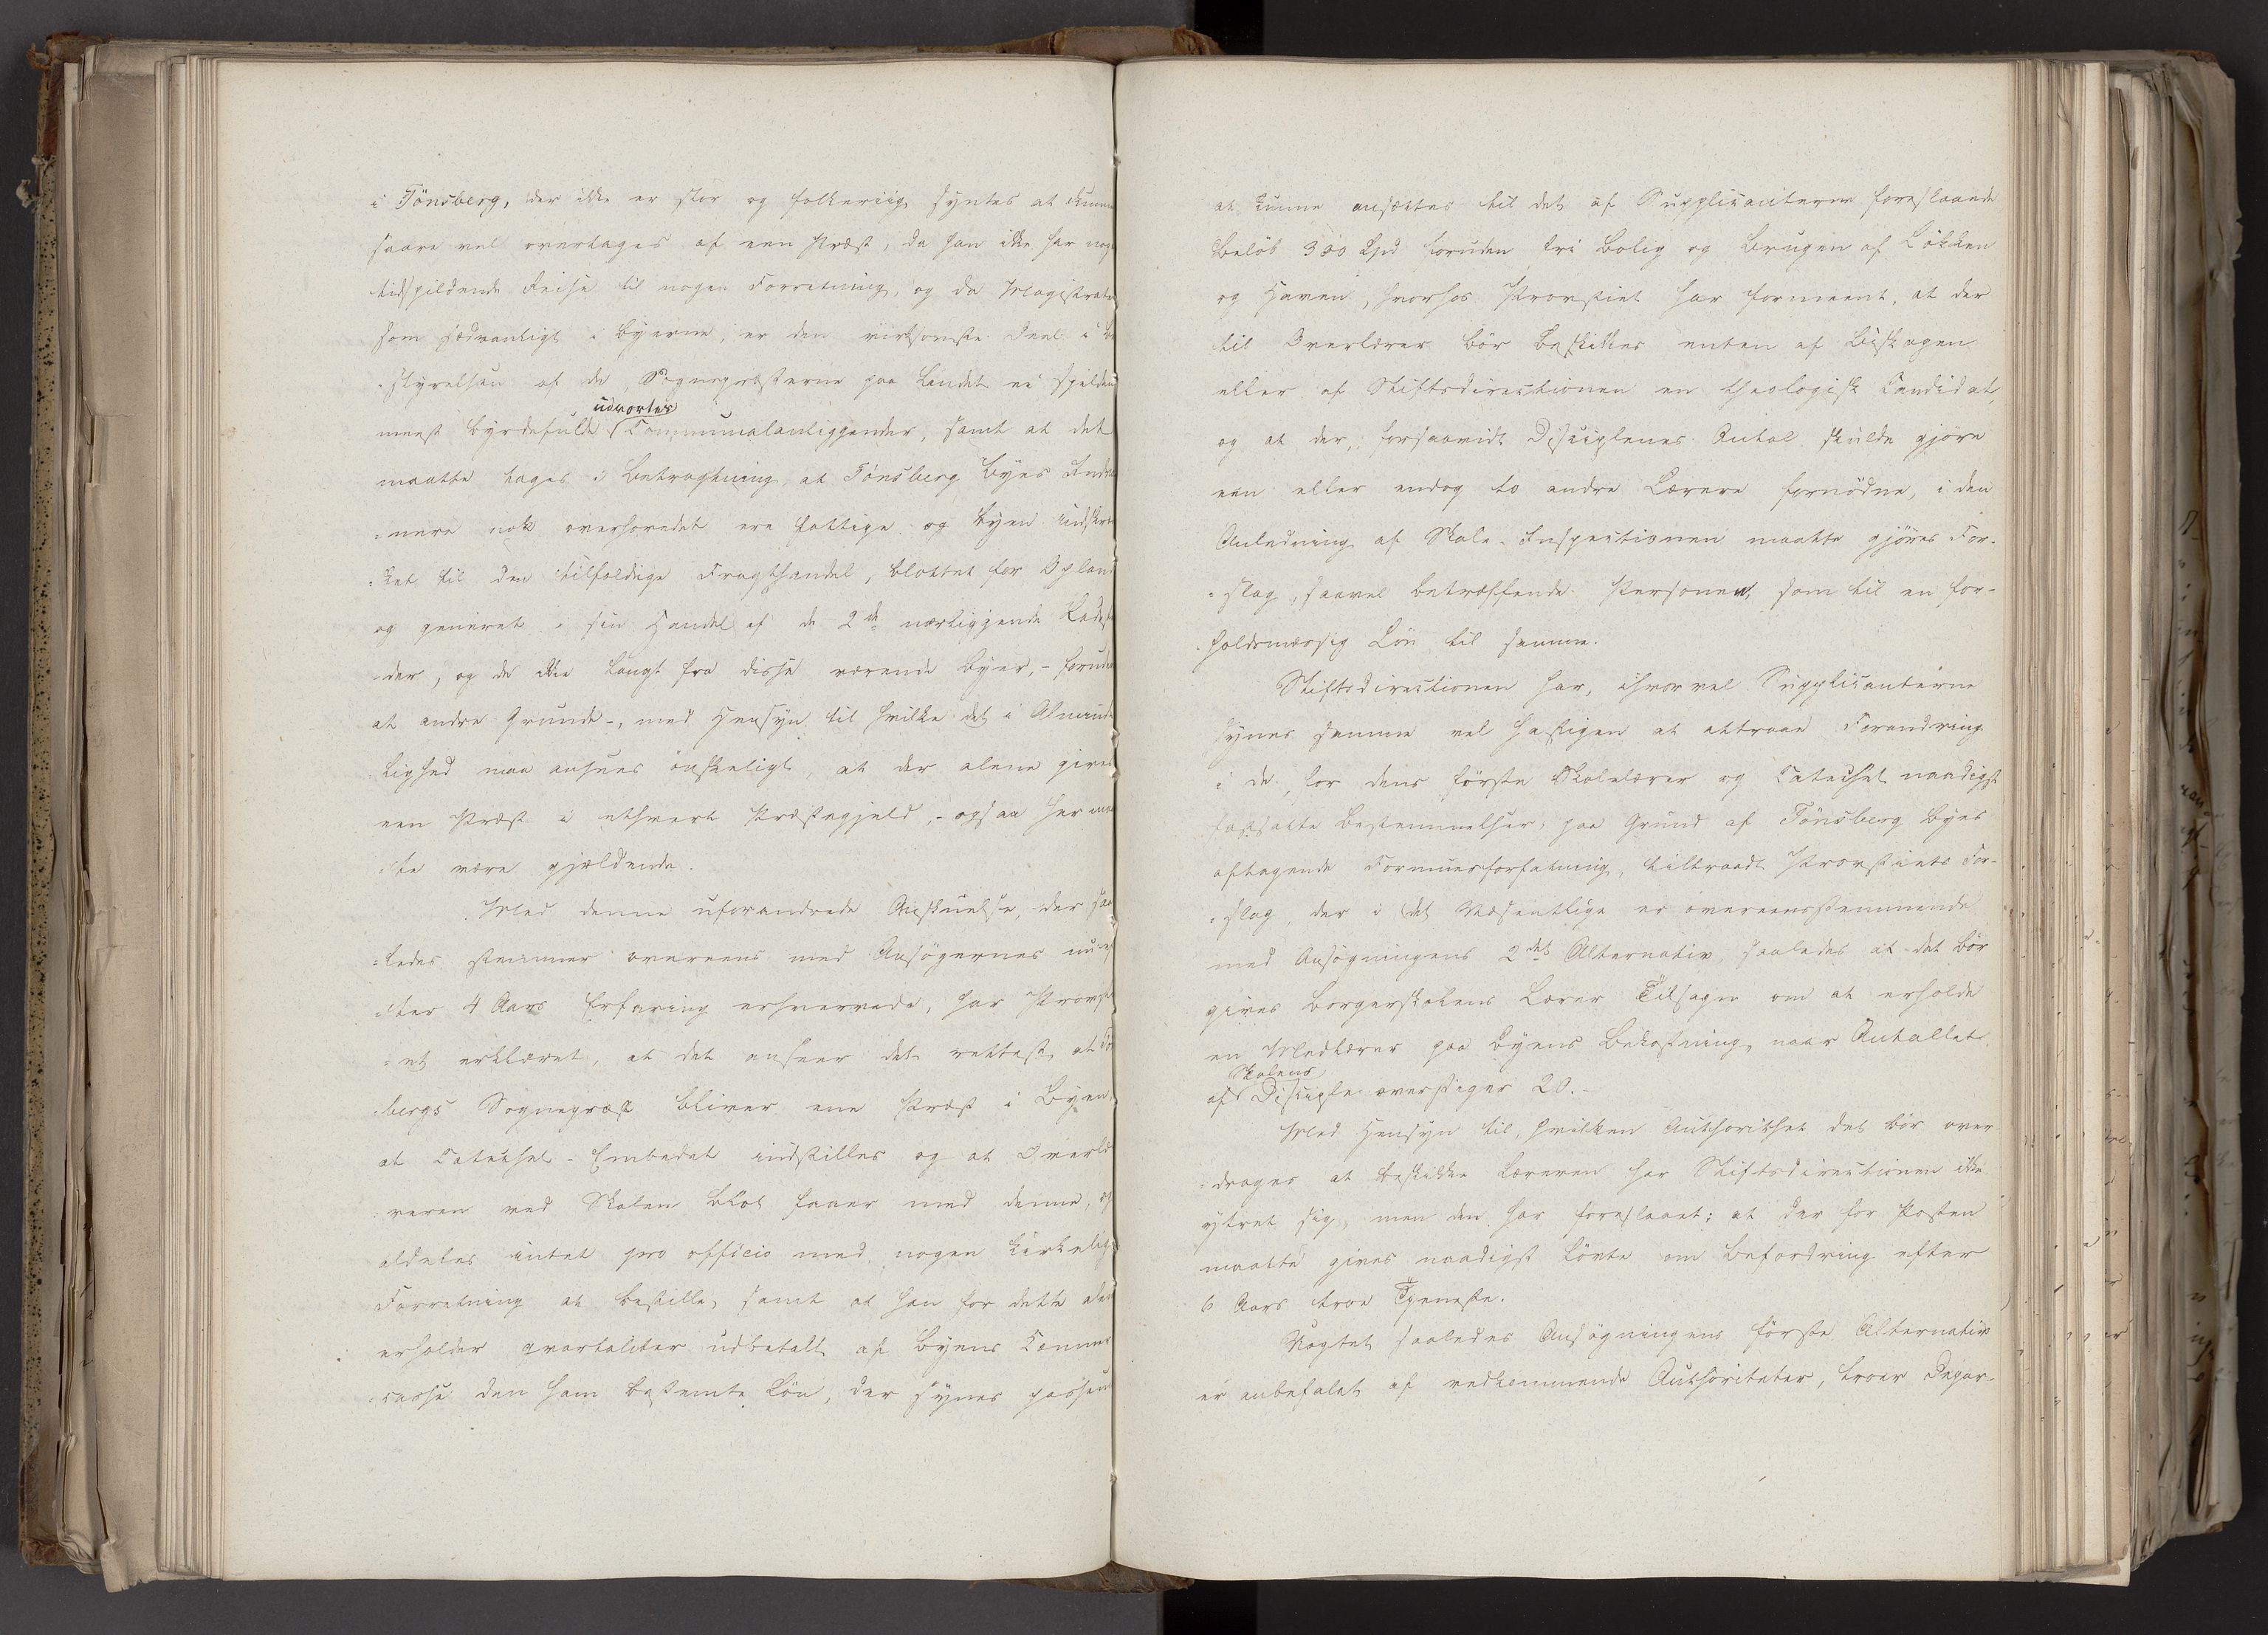 i Tönsberg, der ikke er stor og folkeriig, syntes at kunne
saare vel overtages af een Præst, da han ikke har nogen
tidspildende Reise til nogen Forretning, og da Magistraten
som sædvanligt i Byerne, er den virksomste Deel i Be
-styrelsen af de, Sognepræsterne paa Landet
udvortes
meest byrdefulde Communalanliggender, samt at det
maatte tages i Betragtning, at Tönsberg Byes Indvaa
-nere nok overhovedet ere fattige og Byen indskræn
-ket til den tilfældige Fragthandel, blottet for Opland
og generet i sin Handel af de 2de nærliggende Ladestæ
-der, og de ikke langt fra disse værende Byer, - foruden
at andre Grunde -, med Hensyn til hvilke det i Alminde
lighed maa ansees önskeligt, at der alene gives
een Præst i ethvert Præstegjeld, - ogsaa her maat
-te være gjældende.
Med denne uforandrede Anskuelse, der saa
-ledes stemmer overeens med Ansögernes nu ef
-ter 4 Aars Erfaring erhvervede, har Provsti
-et erklæret, at det anseer det rettest, at Töns
-bergs Sognepræst bliver ene Præst i Byen,
at Catechet-Embedet indstilles og at Overlæ
-reren ved Skolen blot faaer med denne, og
aldeles intet pro officio med nogen kirkelig
Forretning at bestille, samt at han for dette alene
erholder qvartaliter udbetalt af Byens Commune
-casse den ham bestemte Lön, der synes passende
at kunne ansættes til det af Supplicanterne foreslaaede
Belöb 300 Spd foruden fri Bolig og Brugen af Lökken
og Haven, hvorhos Provstiet har formeent, at der
til Overlærer bör beskikkes enten af Biskopen
eller af Stiftsdirectionen en theologisk Candidat,
og at der, forsaavidt Disciplenes Antal skulde gjöre
een eller endog to andre Lærere fornödne, i den
Anledning af Skole-Inspectionen maatte gjöres For-
-slag, saavel betræffende Personen, som til en for-
-holdsmæssig Lön til samme.
Stiftsdirectionen har, ihvorvel Supplicanterne
synes samme vel hastigen at attraae Forandring
i de, for dens förste Skolelærer og Catechet naadigst
fastsatte Bestemmelser, paa Grund af Tönsberg Byes
aftagende Formuesforfatning, tiltraadt Provstiets For-
-slag, der i det Væsentlige er overeensstemmende
med Ansögningens 2det Alternativ, saaledes at det bör
gives Borgerskolens Lærer Tilsagn om at erholde
en Medlærer paa Byens Bekostning, naar Antallet
Skolens
af Disciple overstiger 20.-
Med Hensyn til, hvilken Authoritet det bör over
-drages at beskikke Læreren har Stiftsdirectionen ikke
yttret sig, men den har foreslaaet: at der for Posten
maatte gives naadigst Lövte om Befordring efter
6 Aars troe Tjeneste.
Uagtet saaledes Ansögningens förste Alternativ
er anbefalet af vedkommende Authoriteter, troer Depar-